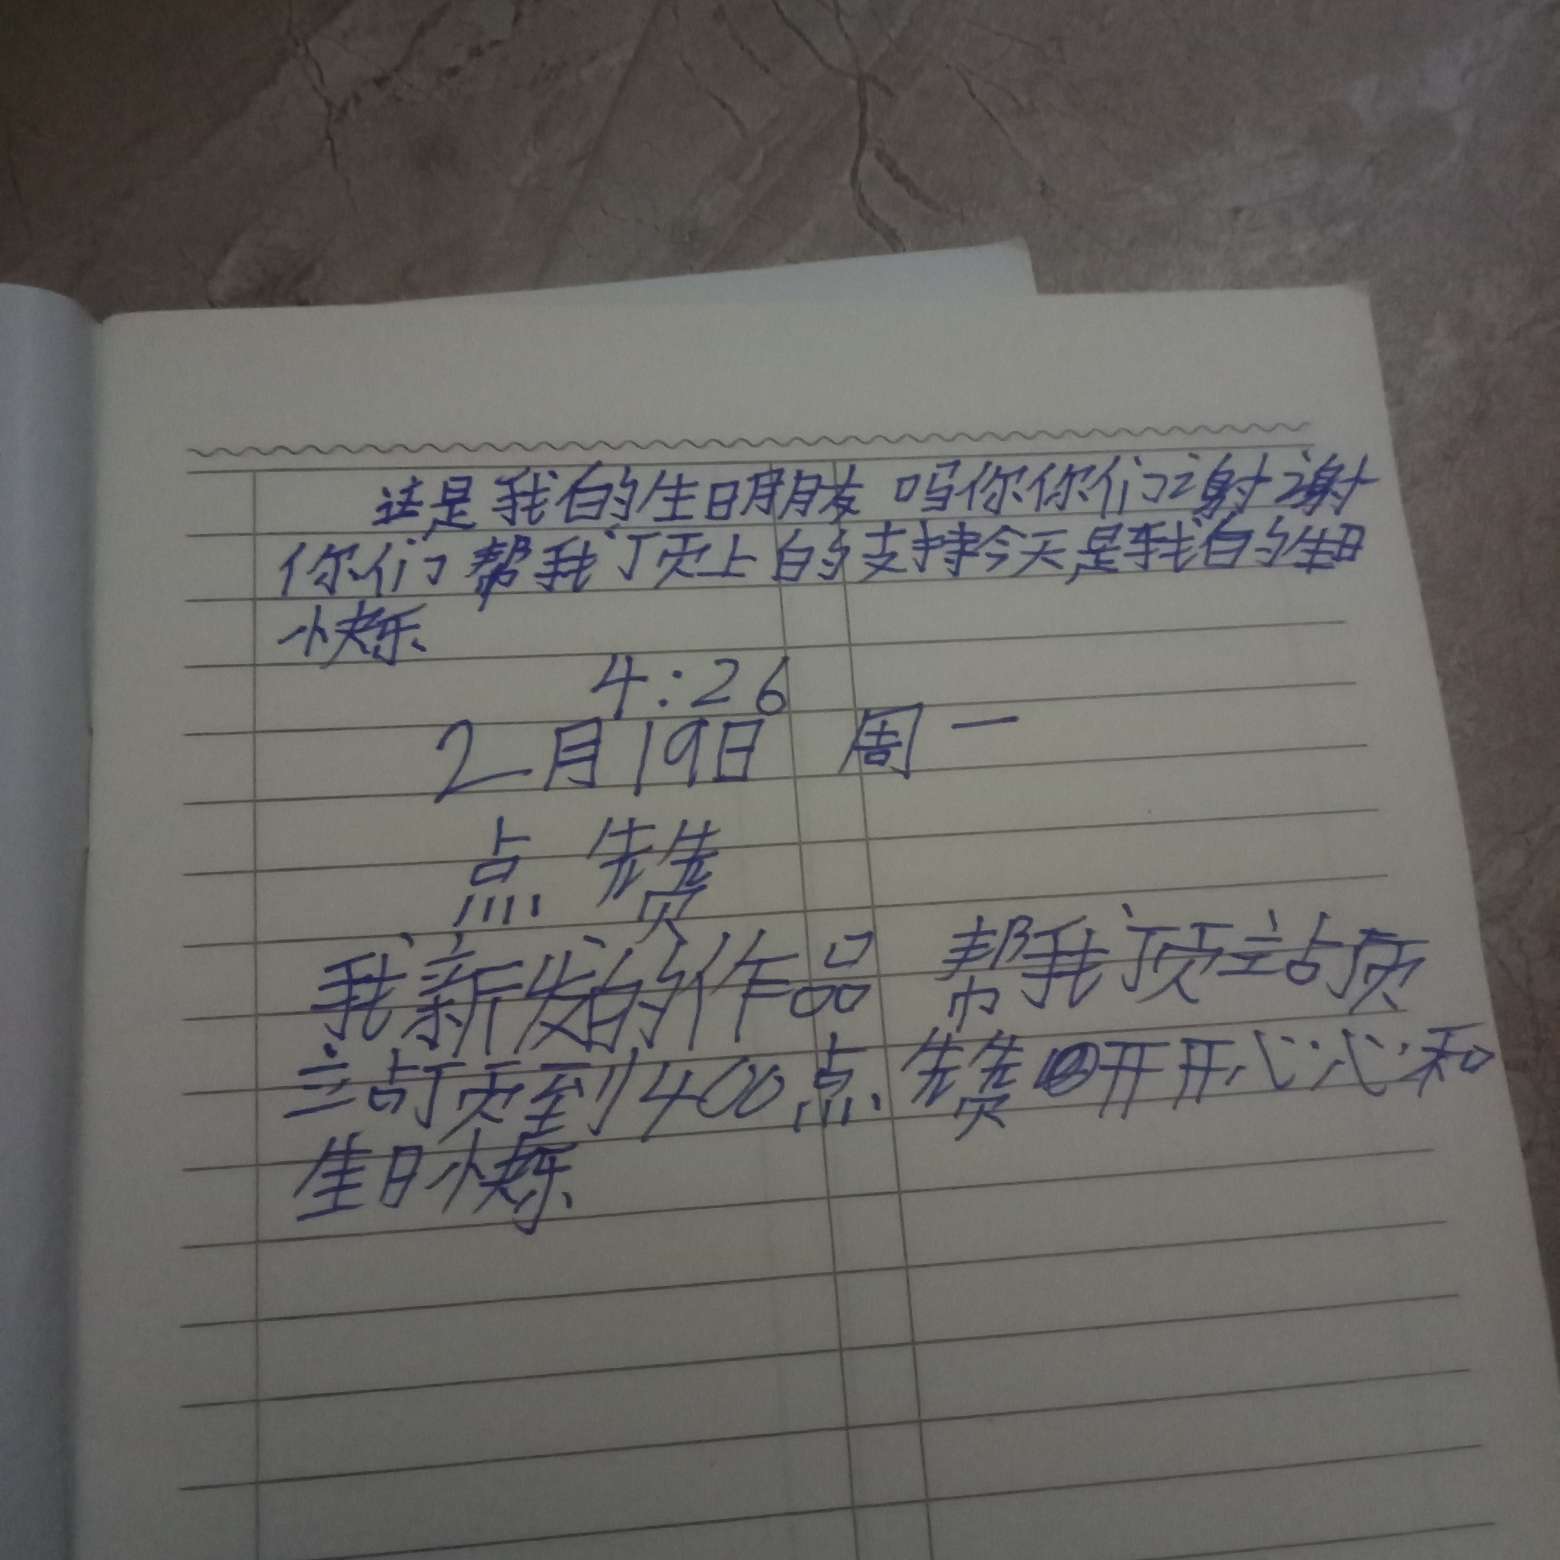 这是我的生日朋友 吗你你们谢谢
你们帮我顶上的支持今天是我的生日
快乐
4:26
2月19日 周一
点 赞
我新发的作品 帮我顶站顶
站顶到400点赞 开开心心和
生日快乐